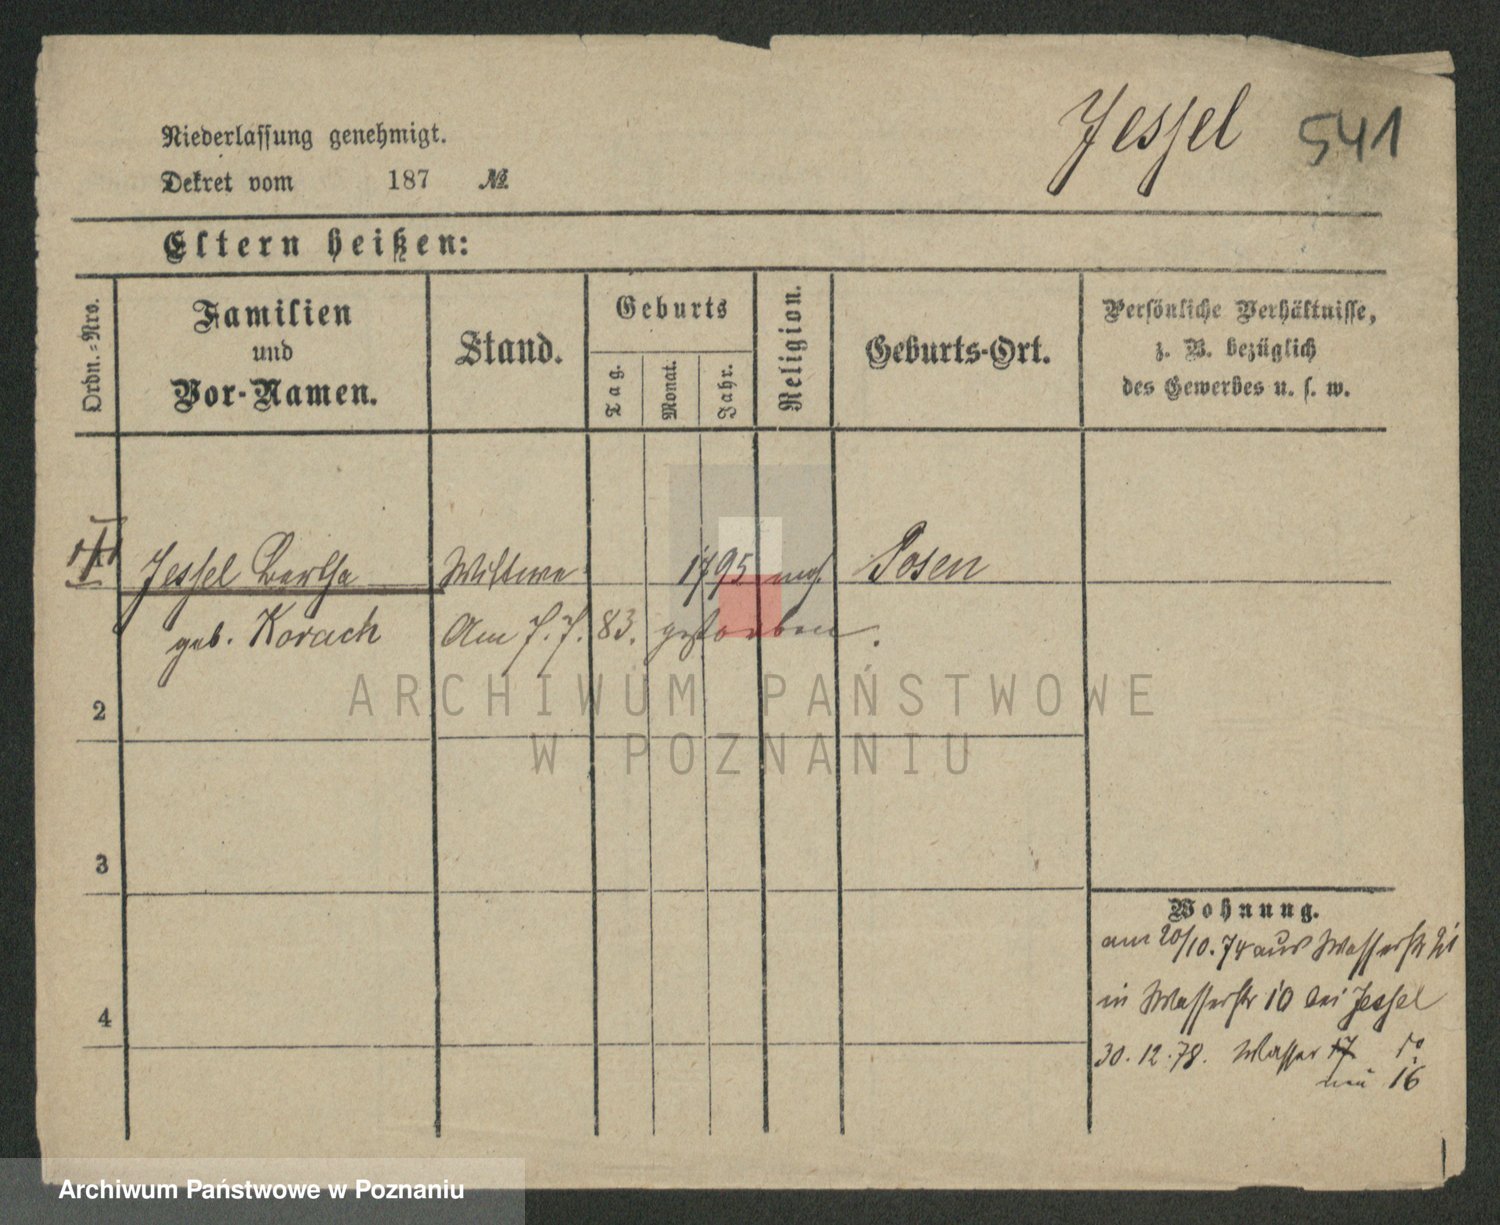 Jessel 541
Niederlassung genehmigt.
Dekret vom 187 №
Eltern heißen:
Ordn.-Nro.
Familien
und
Vor-Namen.
Stand.
Geburts
Tag.
Monat.
Jahr.
Religion.
Geburts-Ort.
Persönliche Verhältnisse,
z. B. bezüglich
des Gewerbes u. s. w.
Jessel Bertha Wittwe 1795 mos. Posen
geb. Korach Am 7.7.83. gestorben.
2
3
4
Wohnung.
am 20/10.74 aus Wasserstr 21
in Wasserstr 10 bei Jessel
30.12.78. Wasser 17
neu 16
ARCHIWUM PAŃSTWOWE
W POZNANIU
Archiwum Państwowe w Poznaniu